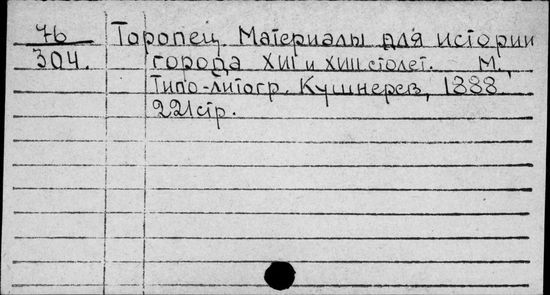 76 Торопец. Материалы для истории
304. города XVII и XVIII столет. М.,
Типо-литогр. Кушнерев, 1888
221 стр.